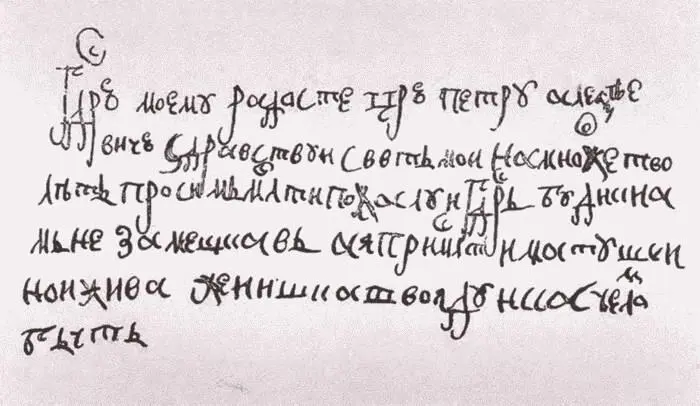 гсдрю моему радасте црю петру алеѯѣе
вичю здравствуи свѣтъ мои на множество
лѣтъ просимъ млсти пожалуи гсдрь буди к на
мъ не замешкавъ а я при млсти матушки
нои жива женишка твоя дунка челом
бьетъ